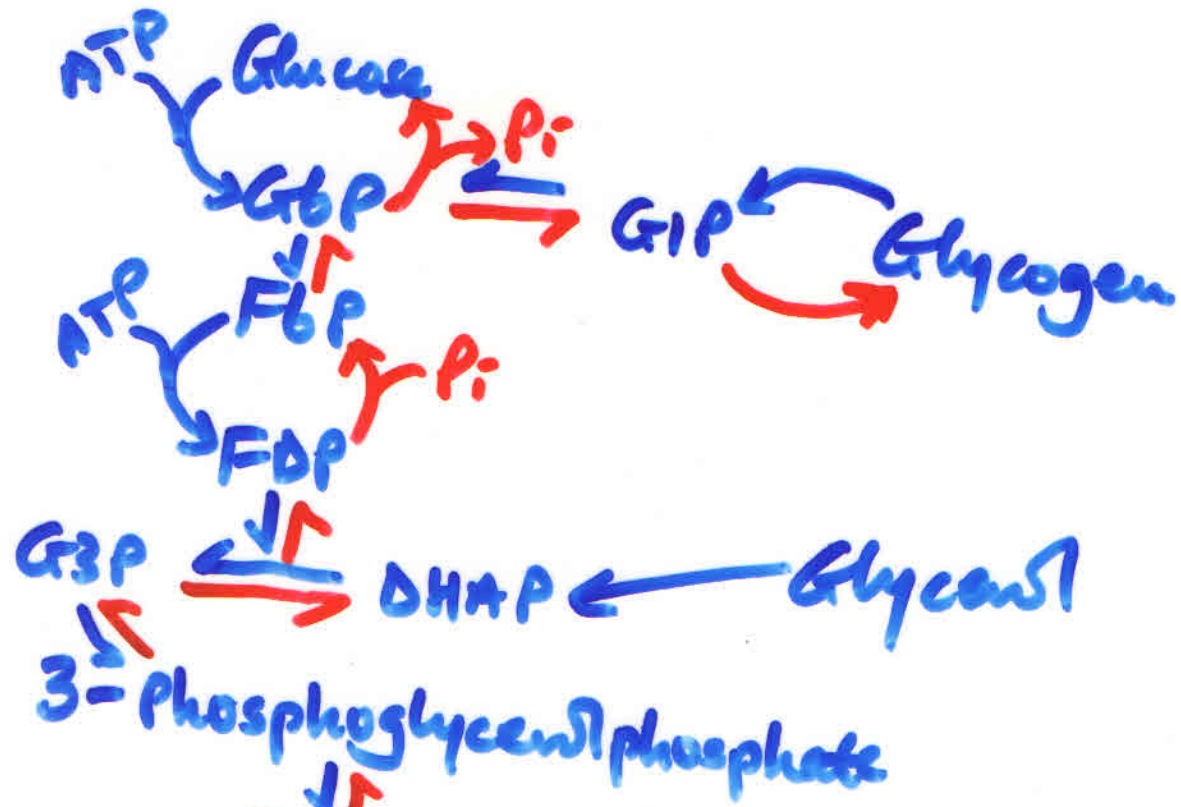 ATP Glucose Pi
G6P G1P Glycogen
ATP F6P Pi
FDP
G3P DHAP Glycerol
3-Phosphoglycerolphosphate